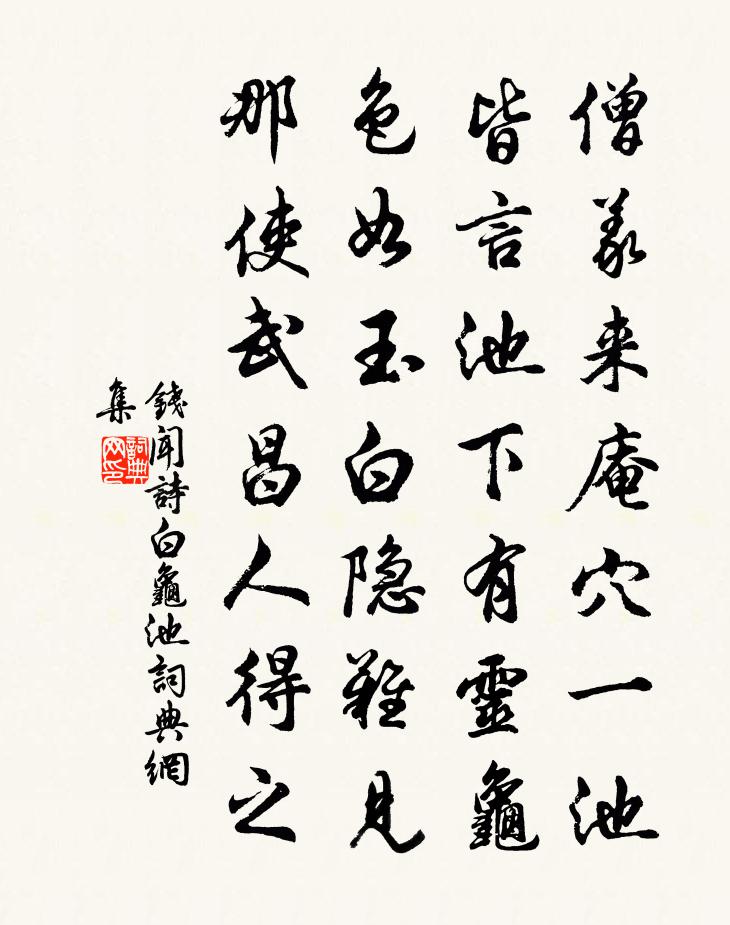 僧羕来庵穴一池
皆言池下有靈龜
色如玉白隐難見
那使武昌人得之
錢聞詩白龜池詞典網
集
詞典
网印